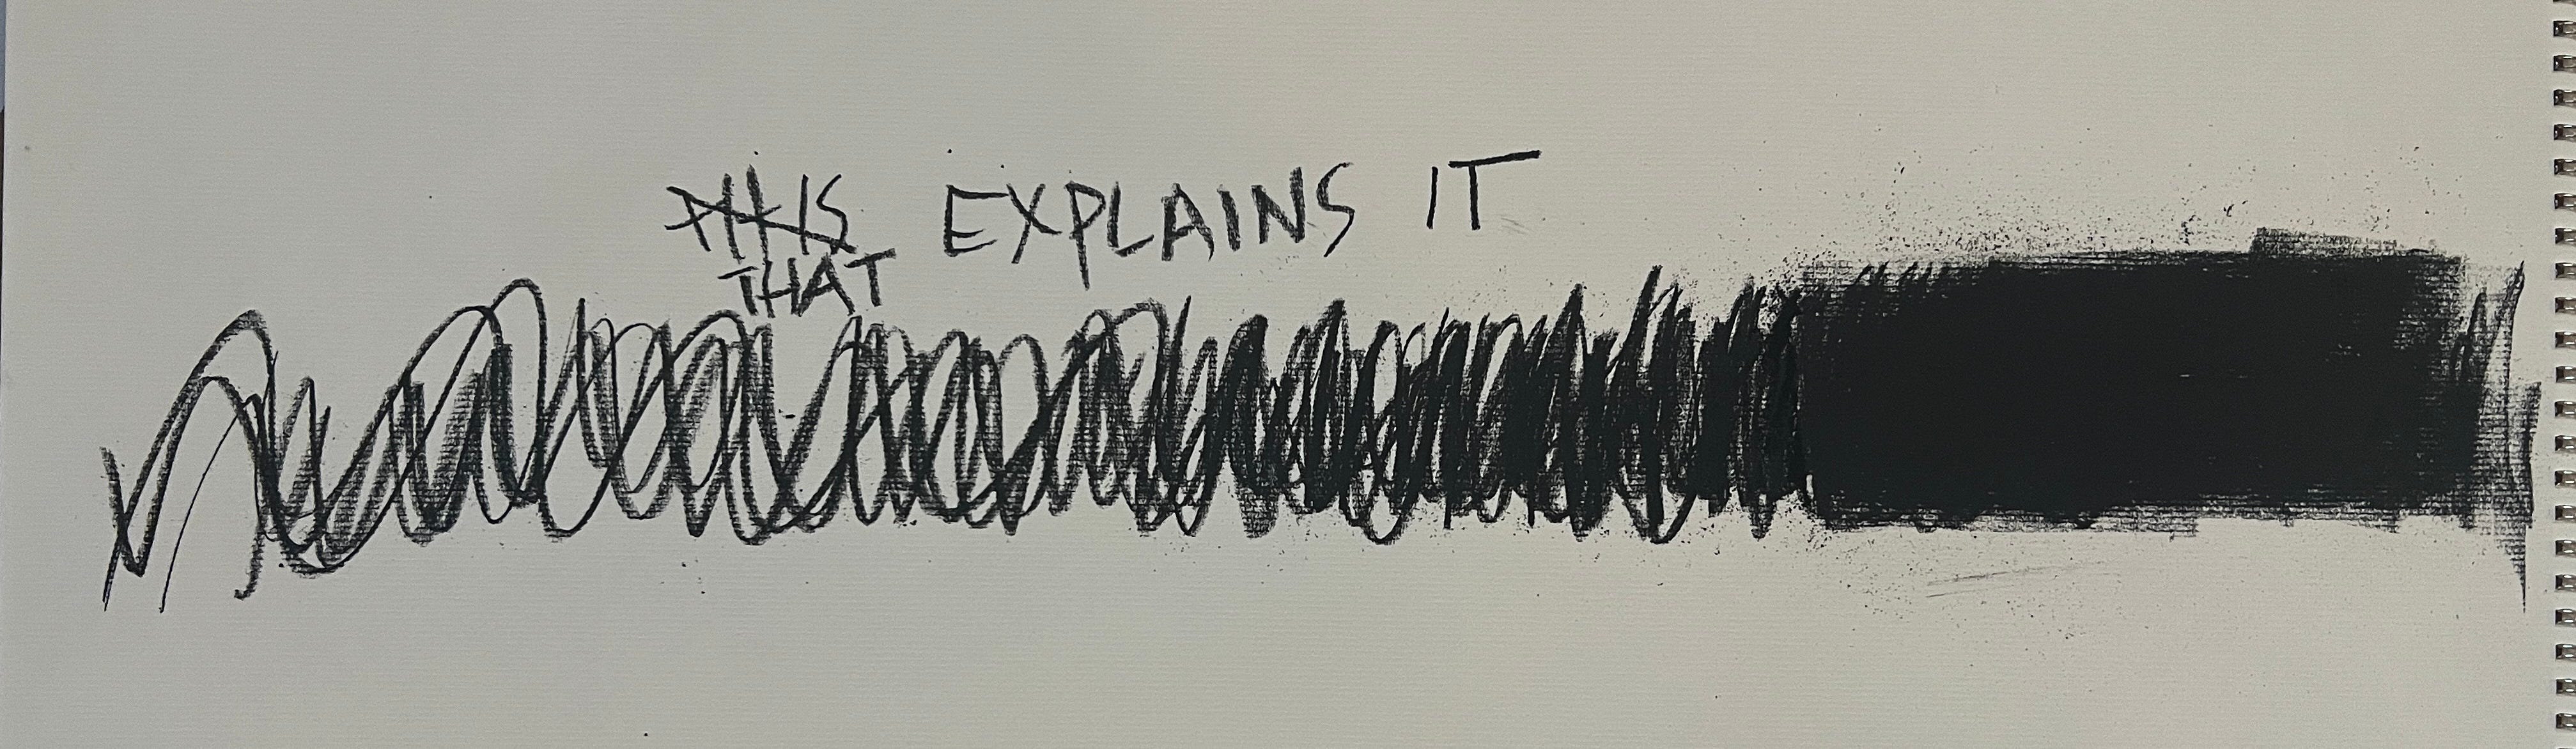 THIS EXPLAINS IT
THAT